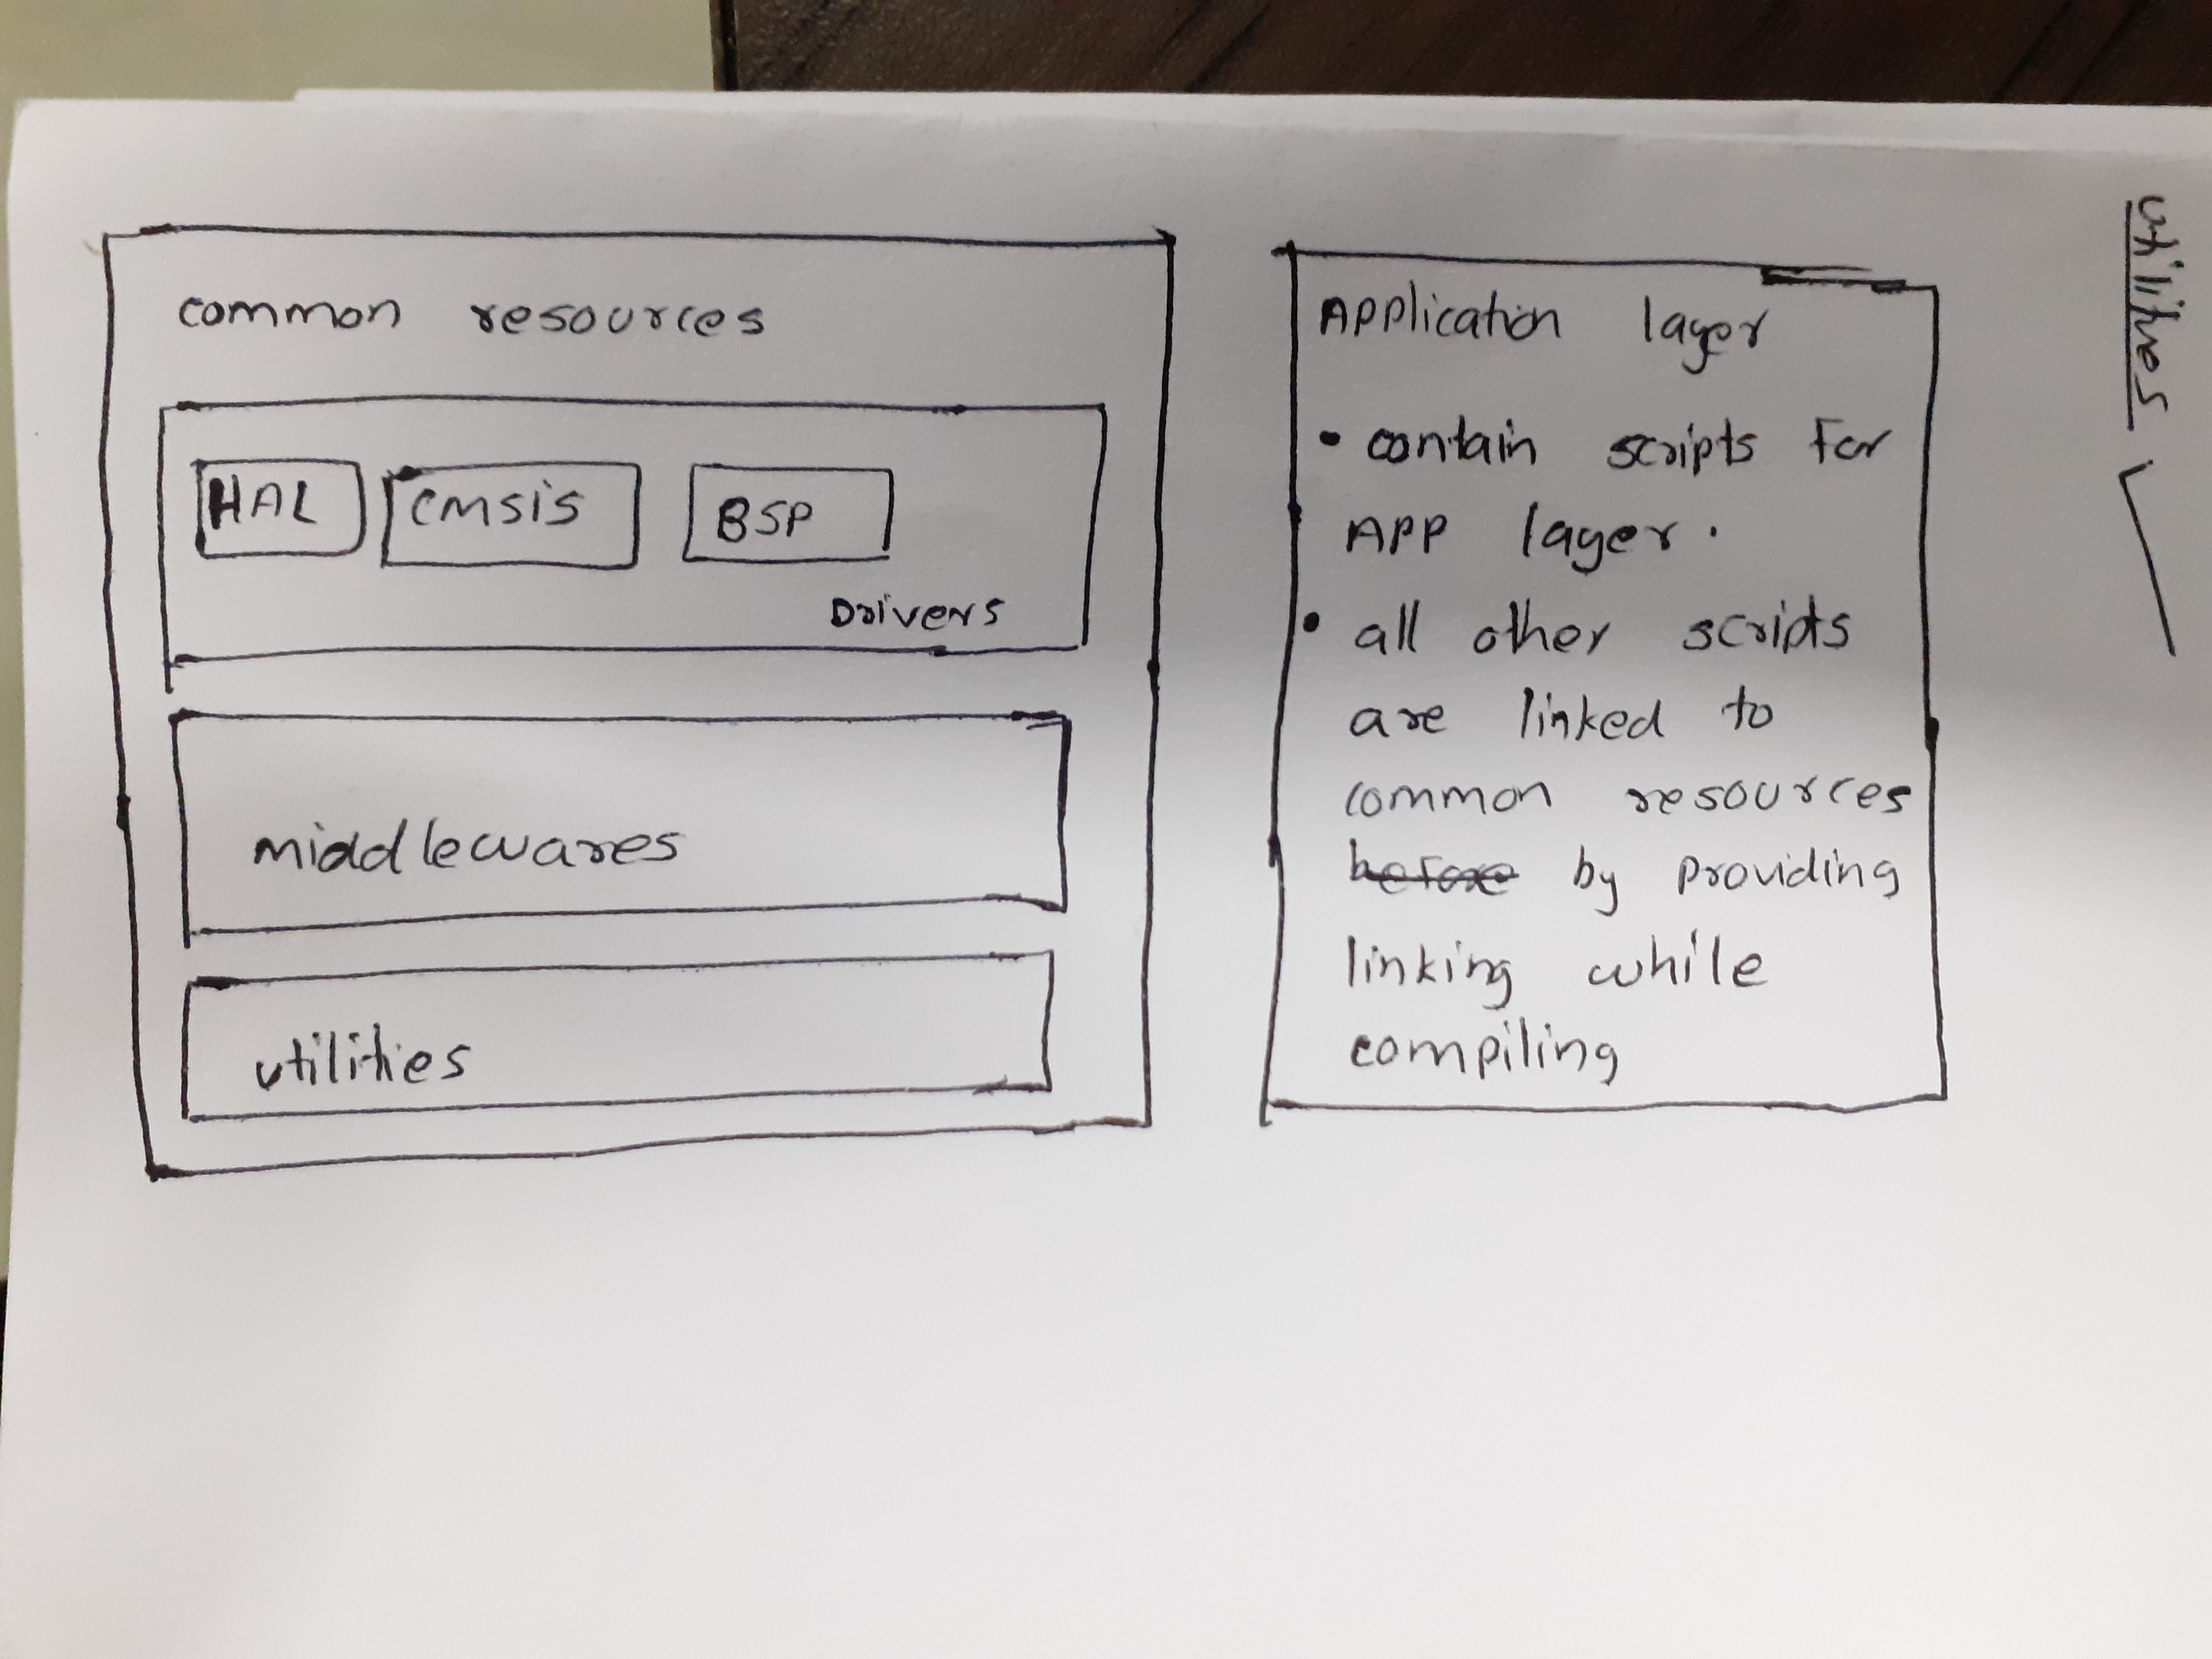 common resources
HAL CMSIS BSP
Drivers
middlewares
utilities
Application layer
• contain scripts for
APP layer.
• all other scripts
are linked to
common resources
before by providing
linking while
compiling
utilities